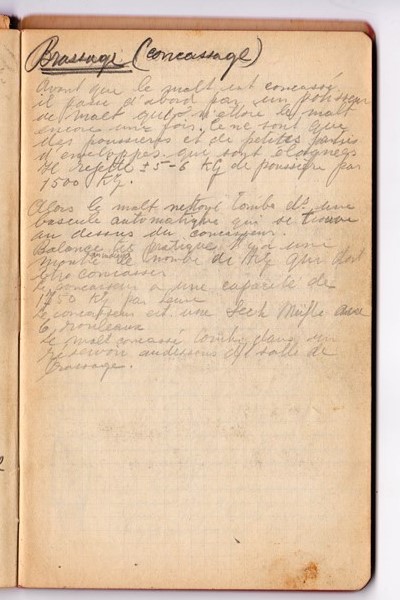 Brassage (concassage)
Avant que le malt est concassé
il passe d'abord par un polisseur
de malt qui nettoie le malt
encore une fois. Ce ne sont que
des poussières et de petites parties
d'enveloppes qui sont éloignées
Il rejette ± 5-6 KG de poussière par
1500 KG.
Alors le malt nettoyé tombe ds. une
bascule automatique qui se trouve
au dessus du concasseur.
Balance très pratique. Il y a une
montre de nombre de KG qui doit
être concasser.
Le concasseur a une capacité de
1750 KG par heure
Le concasseur est une Seck Mühle avec
6 rouleaux
Le malt concassé tombe dans un
réservoir au dessus de salle de
brassage.